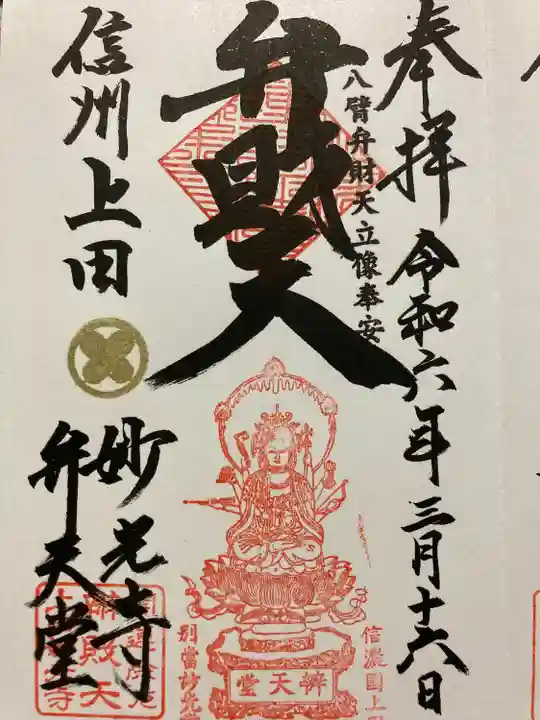 奉拝
令和六年三月十六日
八臂弁財天立像奉安
弁財天
信州上田
妙光寺
弁天堂
信濃国上田
辨天堂
別当妙光寺
辨財天